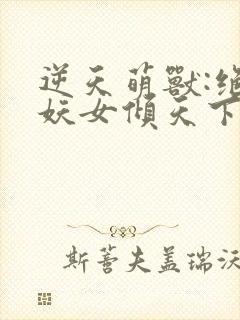 逆天萌獸:絕
妖女傾天下
斯蒈夫盖瑞沃